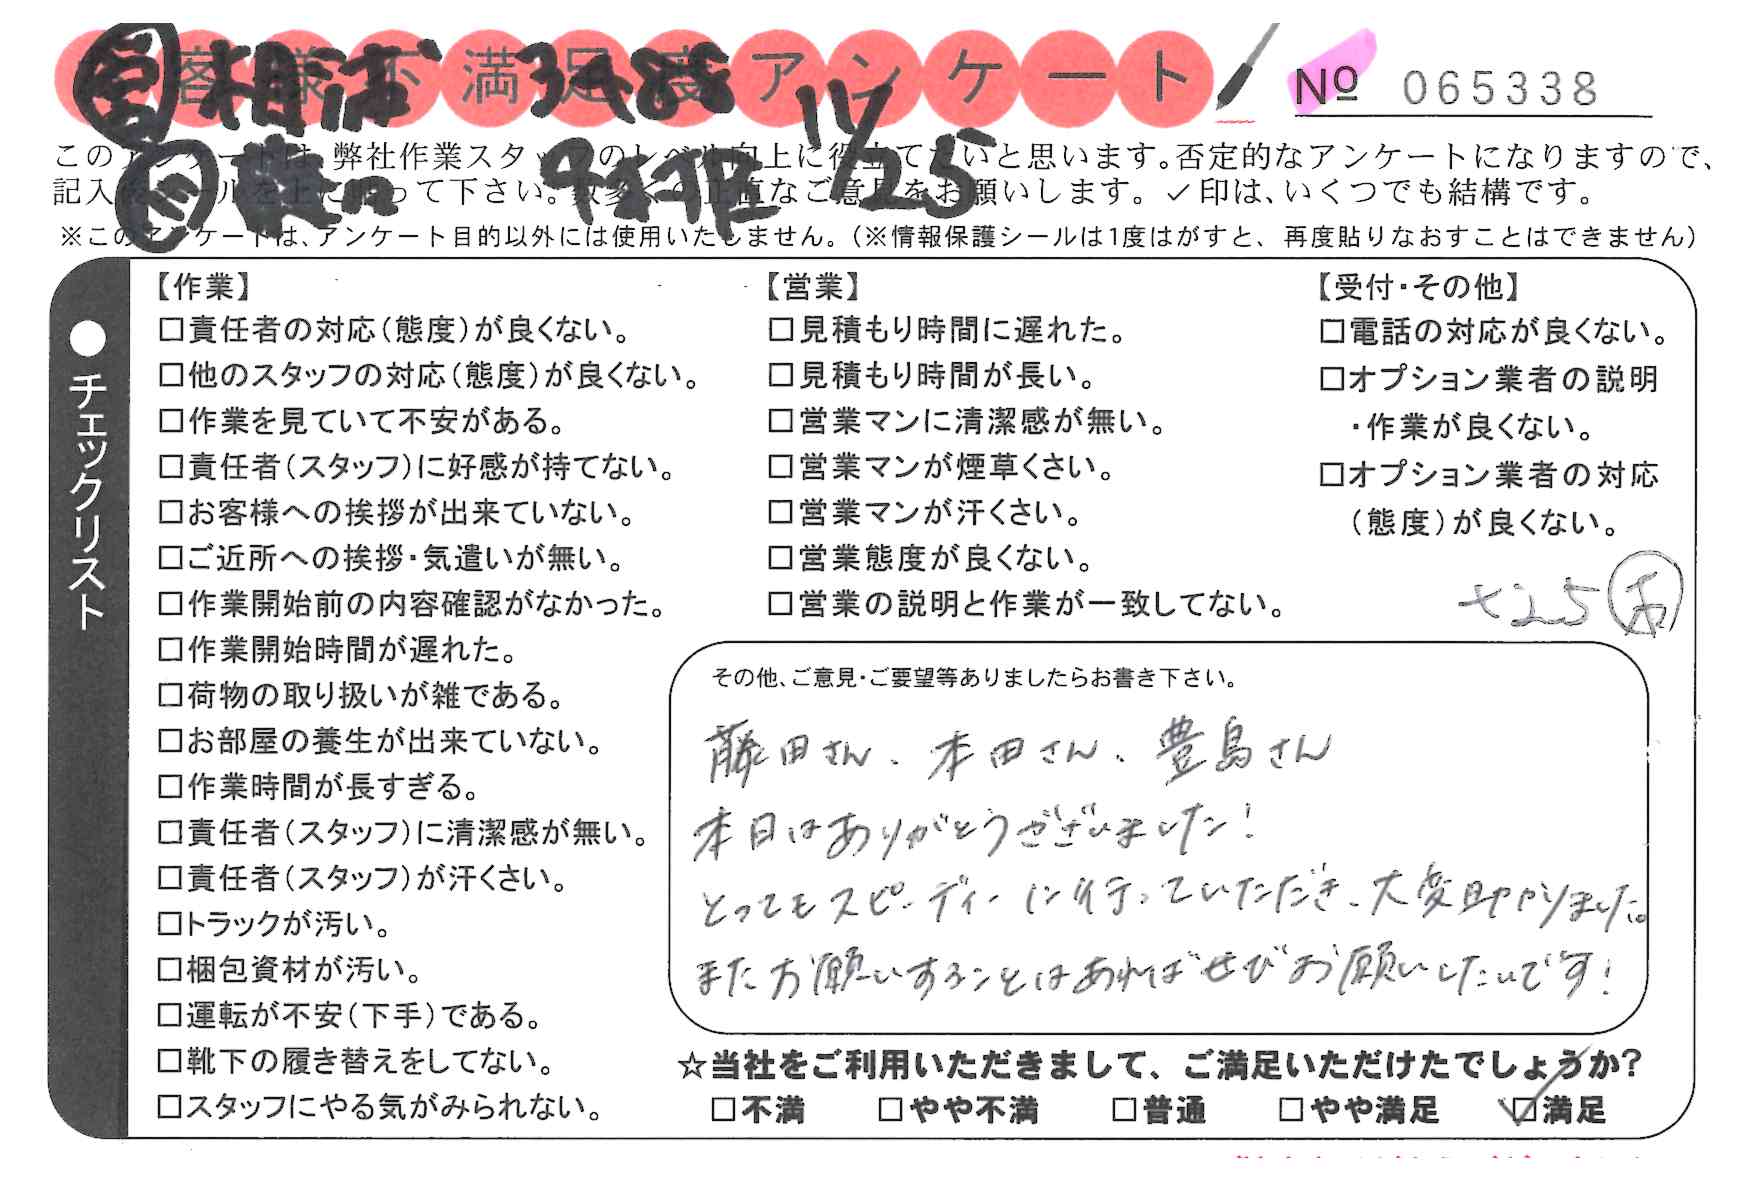 お客様不満足度アンケート
№ 065338
11/25
このアンケートは、弊社作業スタッフのレベル向上に役立てたいと思います。否定的なアンケートになりますので、
記入後シールを上に貼って下さい。数多くの正直なご意見をお願いします。✓印は、いくつでも結構です。
※このアンケートは、アンケート目的以外には使用いたしません。（※情報保護シールは1度はがすと、再度貼りなおすことはできません）
●チェックリスト
【作業】
□責任者の対応（態度）が良くない。
□他のスタッフの対応（態度）が良くない。
□作業を見ていて不安がある。
□責任者（スタッフ）に好感が持てない。
□お客様への挨拶が出来ていない。
□ご近所への挨拶・気遣いが無い。
□作業開始前の内容確認がなかった。
□作業開始時間が遅れた。
□荷物の取り扱いが雑である。
□お部屋の養生が出来ていない。
□作業時間が長すぎる。
□責任者（スタッフ）に清潔感が無い。
□責任者（スタッフ）が汗くさい。
□トラックが汚い。
□梱包資材が汚い。
□運転が不安（下手）である。
□靴下の履き替えをしてない。
□スタッフにやる気がみられない。
【営業】
□見積もり時間に遅れた。
□見積もり時間が長い。
□営業マンに清潔感が無い。
□営業マンが煙草くさい。
□営業マンが汗くさい。
□営業態度が良くない。
□営業の説明と作業が一致してない。
【受付・その他】
□電話の対応が良くない。
□オプション業者の説明
・作業が良くない。
□オプション業者の対応
（態度）が良くない。
+25
その他、ご意見・ご要望等ありましたらお書き下さい。
藤田さん、本田さん、豊島さん
本日はありがとうございました！
とってもスピーディーに行っていただき、大変助かりました。
またお願いすることはあればぜひお願いしたいです！
☆当社をご利用いただきまして、ご満足いただけたでしょうか？
□不満 □やや不満 □普通 □やや満足 ☑満足